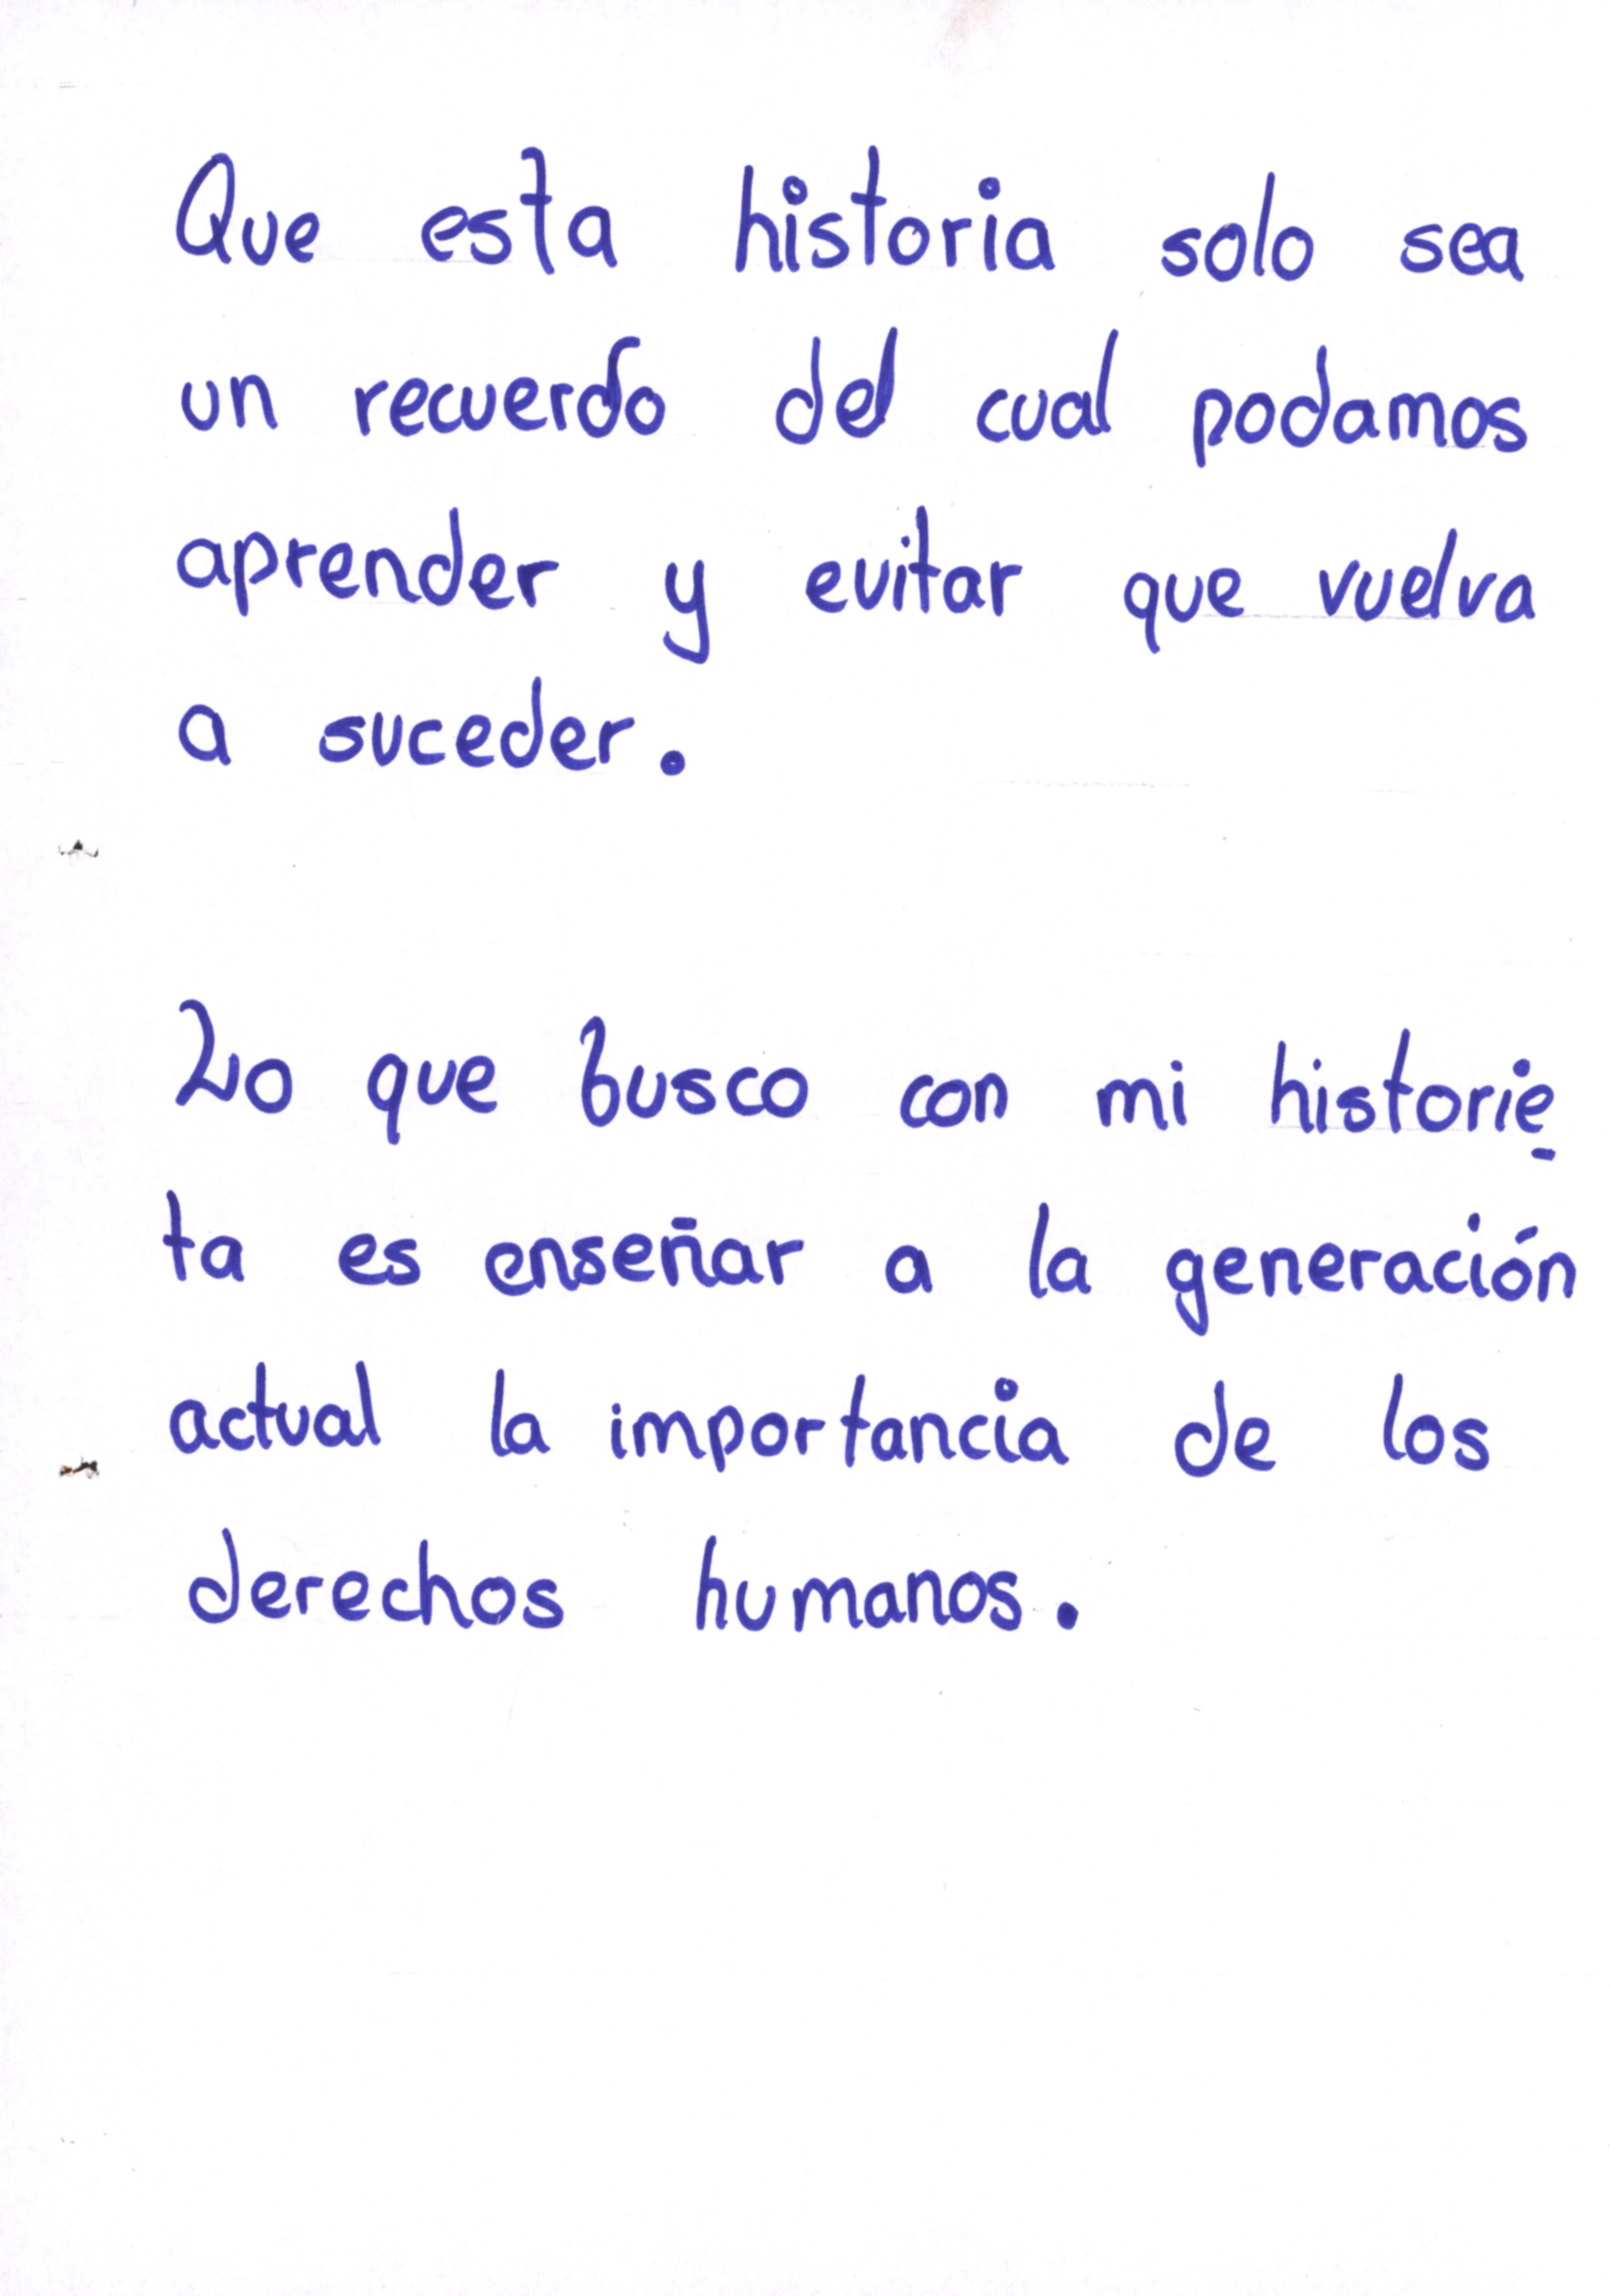 Que esta historia solo sea
un recuerdo del cual podamos
aprender y evitar que vuelva
a suceder.
Lo que busco con mi historie-
ta es enseñar a la generación
actual la importancia de los
derechos humanos.